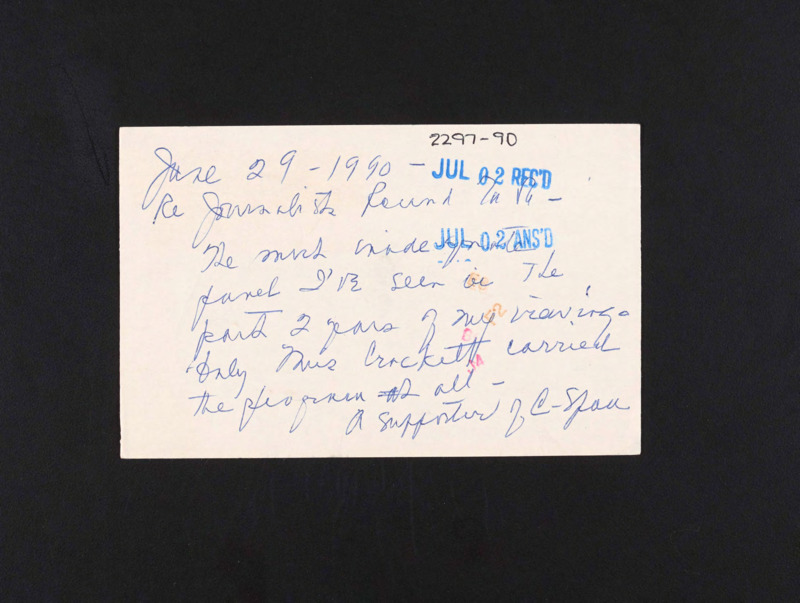 2297-90
June 29-1990-
JUL 02 REC'D
Re Journalists Round Table -
JUL 02 ANS'D
The most inadequate
panel I've seen in The
past 2 years of my viewing.
Only Miss Crockett carried
the program at all -
A supporter of C-Span